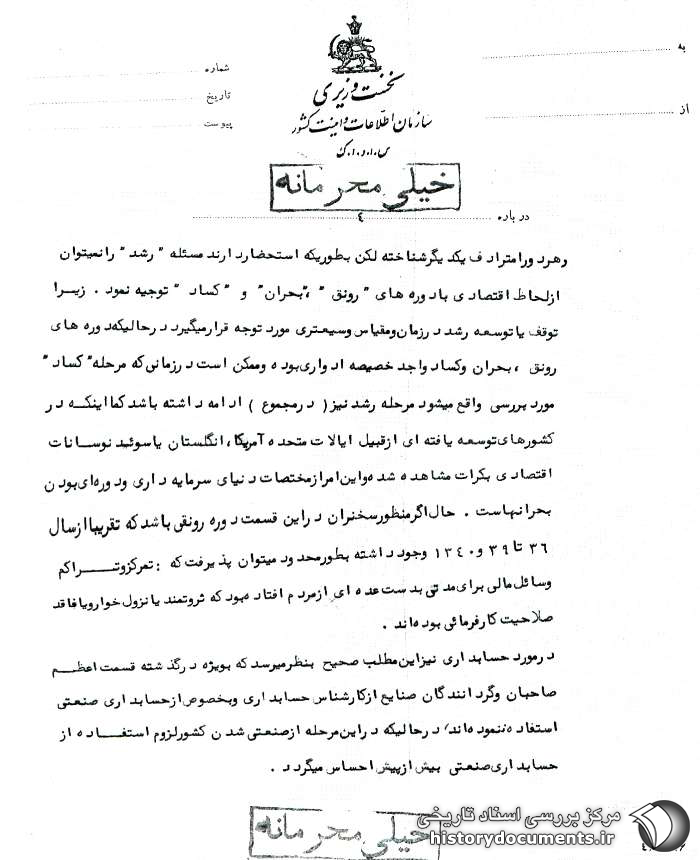 به
از
شماره
تاریخ
پیوست
نخست وزیری
سازمان اطلاعات و امنیت کشور
س.ا.و.ا.ک
خیلی محرمانه
درباره ٤
وهردورامترادف یکدیگرشناخته لکن بطوریکه استحضاردارند مسئله " رشد " رانمیتوان
ازلحاظ اقتصادی بادوره های " رونق " ،"بحران" و " کساد " توجیه نمود . زیرا
توقف یاتوسعه رشد درزمان ومقیاس وسیعتری مورد توجه قرارمیگیرد درحالیکه دوره های
رونق ، بحران وکساد واجد خصیصه ادواری بوده وممکن است درزمانی که مرحله " کساد "
مورد بررسی واقع میشود مرحله رشد نیز ( درمجموع ) ادامه داشته باشد کمااینکه در
کشورهای توسعه یافته ای ازقبیل ایالات متحده آمریکا، انگلستان یاسوئد نوسانات
اقتصادی بکرات مشاهده شده واین امرازمختصات دنیای سرمایه داری ودوره ای بودن
بحرانهاست . حال اگرمنظورسخنران دراین قسمت دوره رونقی باشد که تقریبا ازسال
۳٦ تا ۳۹ و ۱۳٤۰ وجود داشته بطورمحدود میتوان پذیرفت که : تمرکزوتراکم
وسائل مالی برای مدتی بدست عده ای ازمردم افتاده بود که ثروتمند یانزول خوارویافاقد
صلاحیت کارفرمائی بوده اند .
درمورد حسابداری نیزاین مطلب صحیح بنظرمیرسد که بویژه درگذشته قسمت اعظم
صاحبان وگردانندگان صنایع ازکارشناس حسابداری وبخصوص ازحسابداری صنعتی
استفاده ننموده اند، درحالیکه دراین مرحله ازصنعتی شدن کشورلزوم استفاده از
حسابداری صنعتی بیش ازپیش احساس میگردد .
خیلی محرمانه
مرکز بررسی اسناد تاریخی
historydocuments.ir